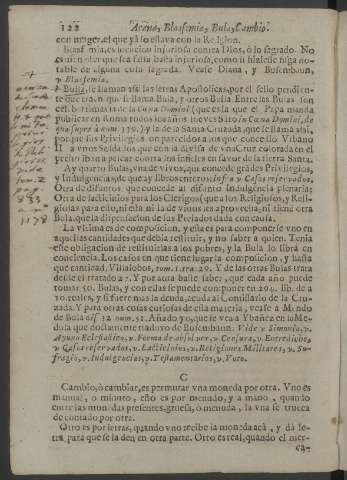 122 Avena, Blasfemia, Bula, Cambio.
con muger, el que ya so estava con la Religion.
Blasfemia, es locucion injuriosa contra Dios, ò lo sagrado. No
es menester que sea falsa basta injuriosa, como si hiziesse fisga no-
table de alguna cosa sagrada. Vease Diana, y Busembaun,
v. Blasfemia.
Bula, se llaman assi las letras Apostolicas, por el sello pendien-
te que trae
ay vna Bula, y otros Bulla Entre las Bulas son
celeberrimas la de la Cœna Domini (que es la que el Papa manda
publicar en Roma todos los años Jueves Sãto in Cœna Domini, de
qua supra à num. 339.) y la de la Santa Cruzada, que se llama assi,
porque sus Privilegios son parecidos à los que concedió Vrbano
II. a vnos Soldados que con la divisa de vna Cruz colorada en el
pecho iban a pelear contra los infieles en favor de la tierra Santa.
Ay quatro Bulas, vna de vivos, que concede grãdes Privilegios,
y Indulgencias, de que ay libros enteros: infra v. Casos reservados.
Otra de difuntos, que concede al difunto Indulgencia plenaria;
Otra de lacticinios para los Clerigos (que a los Religiosos, y Reli-
giosas para esto, ni esta, ni la de vivos les aprovecha, ni tiene otra
Bula, que la dispensacion de sus Prelados dada con causa.
La vltima es de composicion, y esta es para componerse vno en
aquellas cantidades que debia restituir, y no saber a quien. Tenia
este obligacion de restituirlas a los pobres, y la Bula lo libra en
conciencia. Los casos en que tiene lugar la composicion, y hasta
que cantidad, Villalobos, tom. 1. tra. 29. Y de las otras Bulas trata
desde el tratado 27. Y por aora baste saber, que cada año puede
tomar 50. Bulas, y con ellas se puede componer en 294. lib. de a
10. reales, y si fuere mas la deuda, acuda al Comissario de la Cru-
zada. Y para otras cosas curiosas de esta materia, vease a Mendo
de Bula disp. 32. num. 51. Añado yo, que se vea a Ybañez en su Me-
dula que doctamente maduro de Busembaun. Vide v. Simonia, v.
Ayuno Eclesiastico, v. Forma de absolver, v. Censura, v. Entredicho,
v. Casos reservados, v. Lacticinios, v. Religiones Militares, v. Su-
fragio, v. Indulgencias, v. Testamentarios, v. Voto.
C
Cambio, ò cambiar, es permutar vna moneda por otra. Vno es
manual, o minuto, esto es por menudo, y a mano, quando
entre las monedas presentes, gruesa, o menuda, la vna se trueca
de contado por otra.
Otro es por letras, quando vno recibe la moneda acà, y dà le-
tra para que se la den en otra parte. Otro es real, quando el mer-
ca-
tom. 2.
pag.
883
a nº
1178